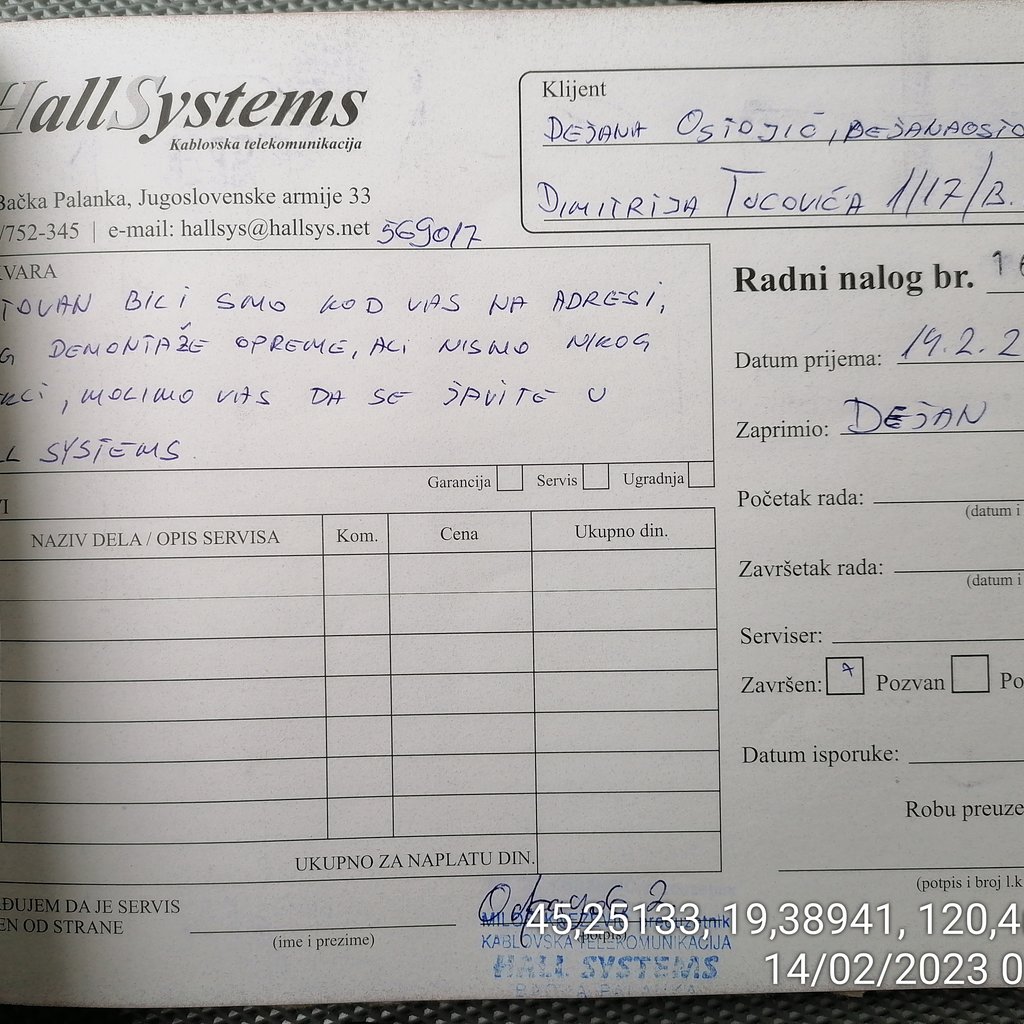 HallSystems
Kablovska telekomunikacija
Bačka Palanka, Jugoslovenske armije 33
/752-345 | e-mail: hallsys@hallsys.net 5690/7
Klijent
DEJANA OSTOJIĆ, DEJANAOSTO
DIMITRIJA TUCOVIĆA 1/17/B.
KVARA
TOVAN BILI SMO KOD VAS NA ADRESI,
G DEMONTAŽE OPREME, ALI NISMO NIKOG
EKLI, MOLIMO VAS DA SE JAVITE U
LL SYSTEMS.
Garancija Servis Ugradnja
Radni nalog br. 16
Datum prijema: 14.2.2
Zaprimio: DEJAN
Početak rada:
(datum i
Završetak rada:
(datum i
Serviser:
Završen: Pozvan Po
Datum isporuke:
Robu preuze
(potpis i broj l.k
VI
NAZIV DELA / OPIS SERVISA Kom. Cena Ukupno din.
UKUPNO ZA NAPLATU DIN.
AĐUJEM DA JE SERVIS
EN OD STRANE
(ime i prezime)
(potpis)
KABLOVSKA TELEKOMUNIKACIJA
HALL SYSTEMS
BAČKA PALANKA
45,25133, 19,38941, 120,4
14/02/2023 0